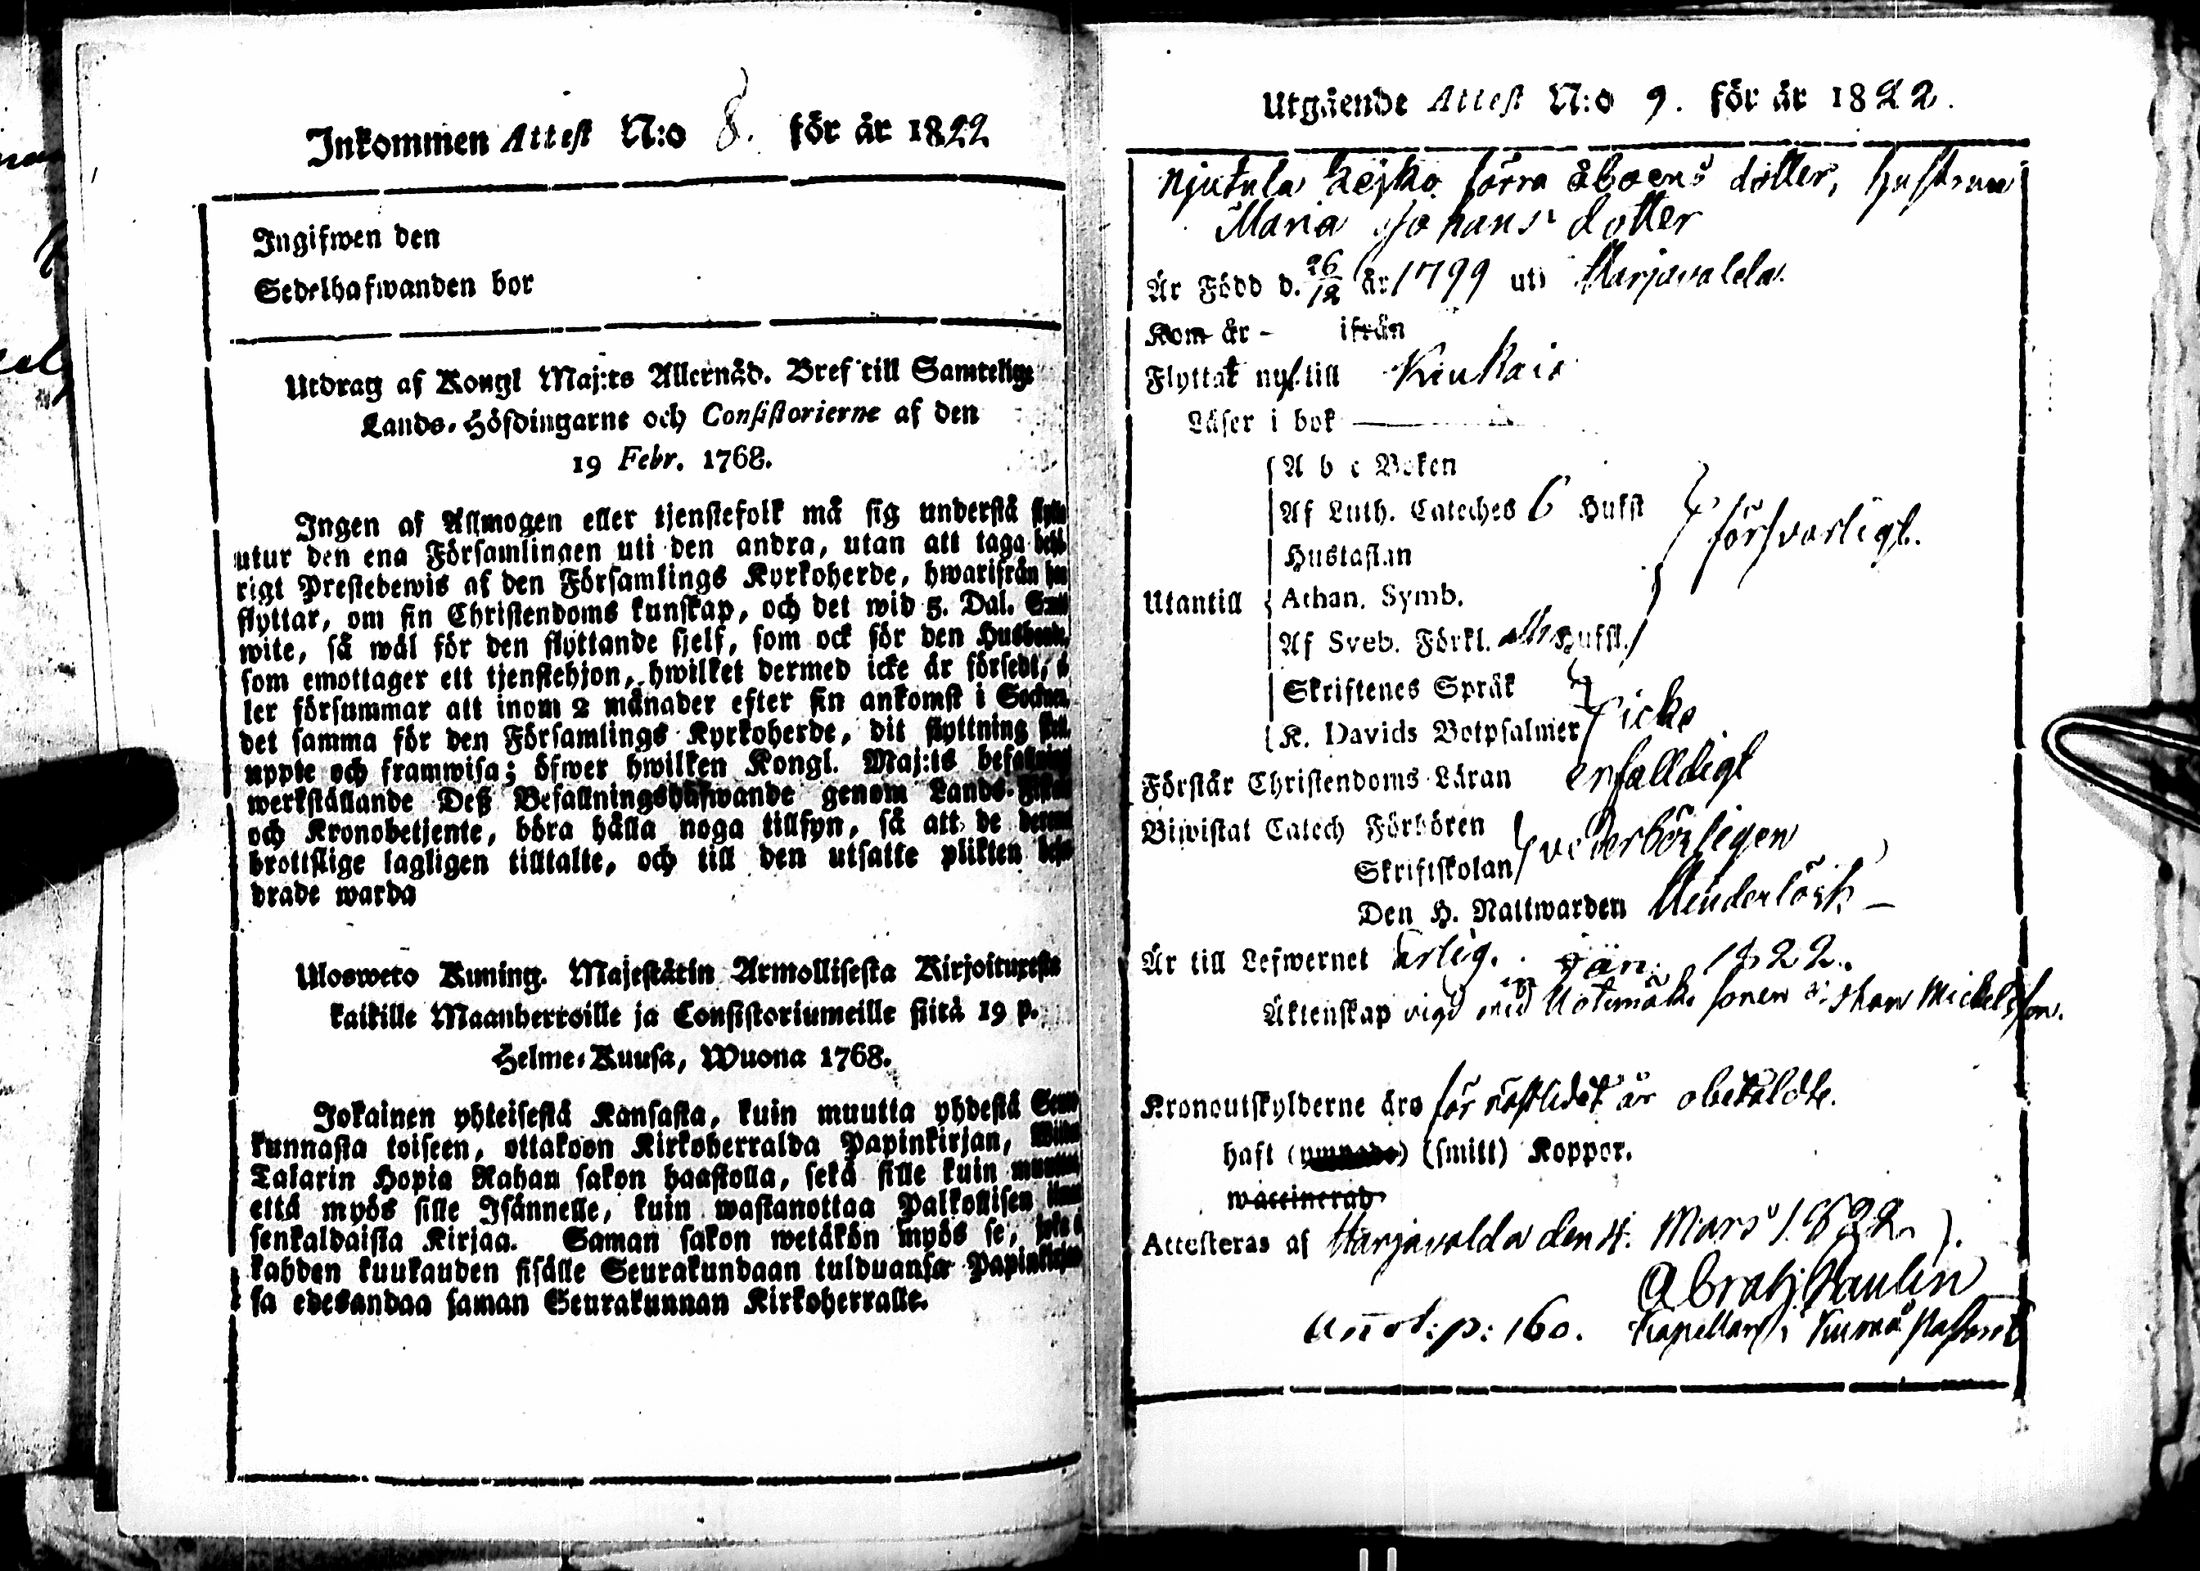 Inkommen Attest N:o 8. för år 1822
Ingifwen den
Sedelhafwanden bor
Utdrag af Kongl Maj:ts Allernåd. Bref till Samtelige
Lands-Höfdingarne och Consistorierne af den
19 Febr. 1768.
Ingen af Allmogen eller tjenstefolk må sig understå
utur den ena Församlingen uti den andra, utan att taga
rigt Prestebewis af den Församlings Kyrkoherde, hwarifrån
flyttar, om sin Christendoms kunskap, och det wid 5. Dal.
wite, så wäl för den flyttande sjelf, som ock för den
som emottager ett tjenstehjon, hwilket dermed icke är försedt,
ler försummar att inom 2 månader efter sin ankomst i
det samma för den Församlings Kyrkoherde, dit flyttning
uppte och framwisa; öfwer hwilken Kongl. Maj:ts
werkställande Deß Befallningshafwande genom Lands-
och Kronobetjente, böra hålla noga tillsyn, så att de
brottslige lagligen tilltalte, och till den utsatte plikten
drade warda
Ulosweto Kuning. Majestätin Armollisesta Kirjoituxesta
kaikille Maanherroille ja Consistoriumeille siitä 19 p.
Helme-Kuusa, Wuona 1768.
Jokainen yhteisestä Kansasta, kuin muutta yhdestä
kunnasta toiseen, ottakoon Kirkoherralda Papinkirjan,
Talarin Hopia Rahan sakon haastolla, sekä sille kuin
että myös sille Isännelle, kuin wastanottaa Palkollisen
senkaldaista Kirjaa. Saman sakon wetäkön myös se,
kahden kuukauden sisälle Seurakundaan tulduansa
sa edesandaa saman Seurakunnan Kirkoherralle.
Utgående Attest N:o 9. för år 1822.
förra åboens dotter, hustrun
Maria Johans dotter
Är Född d. 26/12 år 1799 uti Harjavalda
Kom år - ifrån
Flyttat nu till Kiukais
Läser i bok
A b c Boken
Af Luth. Cateches 6 Hufst
Hustaflan
försvarligt.
Utantill
Athan. Symb.
Af Sveb. Förkl. alla Hufst.
Skriftenes Språk
K. Davids Botpsalmer
icke
Förstår Christendoms Läran enfalldigt
Biwistat Catech Förhören
Skriftskolan
vederbörligen
Den H. Nattwarden
Är till Lefwernet ärlig. 1822.
Äktenskap vigd med sonen Johan Mickelsson.
Kronoutskylderne äro för obetaldte.
haft () (smitt) Koppor.
Attesteras af Harjavalda den 4. Mars 1822.
Abrah: Paulin
Annot: p: 160. Kapellan i